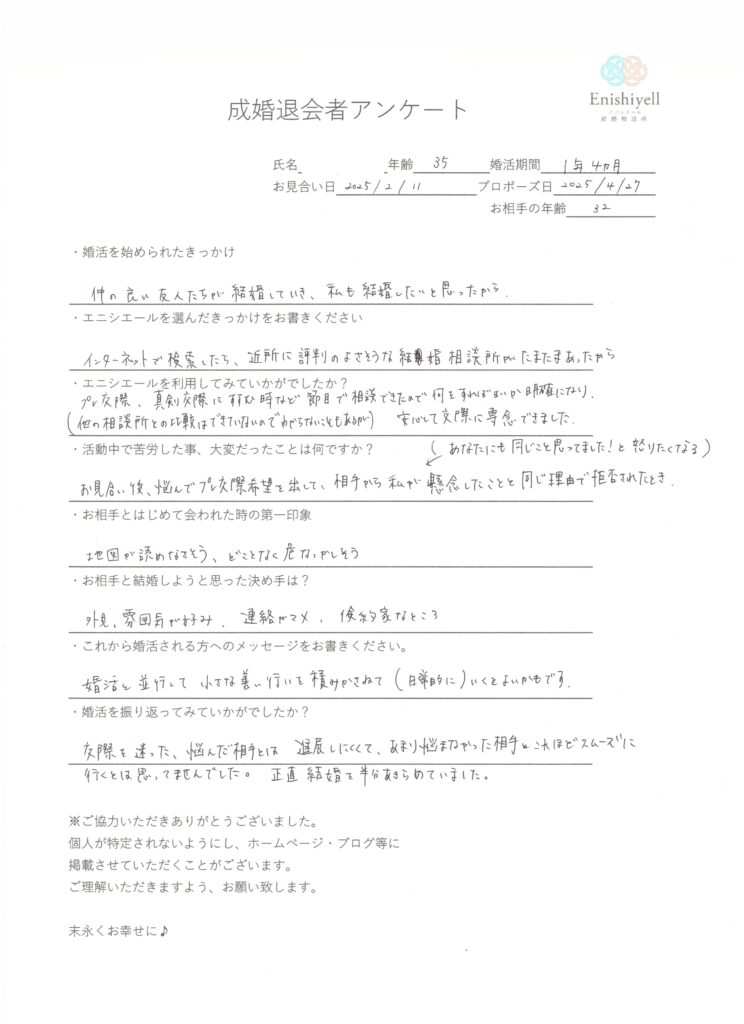 Enishiyell
エニシエール
結婚相談所
成婚退会者アンケート
氏名 年齢 35 婚活期間 1年4ヵ月
お見合い日 2025/2/11 プロポーズ日 2025/4/27
お相手の年齢 32
・婚活を始められたきっかけ
仲の良い友人たちが結婚していき、私も結婚したいと思ったから.
・エニシエールを選んだきっかけをお書きください
インターネットで検索したら、近所に評判のよさそうな結婚相談所がたまたまあったから
・エニシエールを利用してみていかがでしたか？
プレ交際、真剣交際にすすむ時など節目で相談できたので何をすればよいか明確になり.
(他の相談所との比較はできていないのでわからないこともあるが) 安心して交際に専念できました.
・活動中で苦労した事、大変だったことは何ですか？
(あなたにも同じこと思ってました！と怒りたくなる)
お見合い後、悩んでプレ交際希望を出して、相手から私が懸念したことと同じ理由で拒否されたとき.
・お相手とはじめて会われた時の第一印象
地図が読めなさそう、どことなく危なっかしそう
・お相手と結婚しようと思った決め手は？
外見、雰囲気が好み、連絡がマメ、倹約家なところ
・これから婚活される方へのメッセージをお書きください。
婚活と並行して小さな善い行いを積みかさねて(日常的に)いくとよいかもです.
・婚活を振り返ってみていかがでしたか？
交際を迷った、悩んだ相手とは 進展しにくくて、あまり悩まなかった相手とこれほどスムーズに
行くとは思ってませんでした。 正直 結婚を半分あきらめていました。
※ご協力いただきありがとうございました。
個人が特定されないようにし、ホームページ・ブログ等に
掲載させていただくことがございます。
ご理解いただきますよう、お願い致します。
末永くお幸せに♪